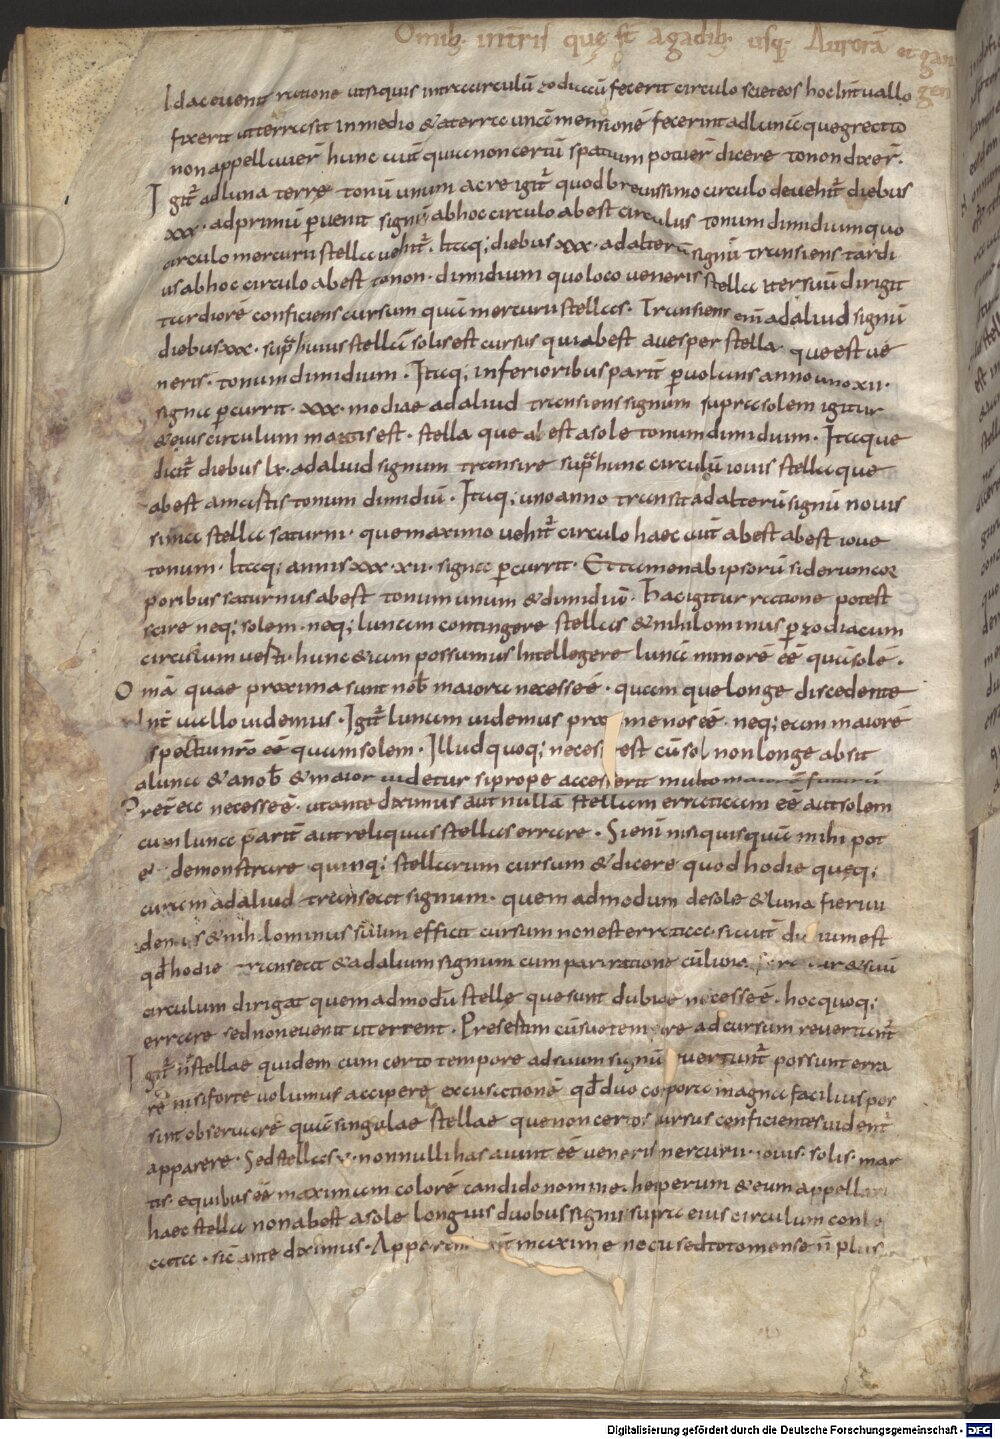 Omib. intris quę st agadib. usq. Aurorā et gan
gen
Id ac evenit ratione ut siquis intra circulū zodiacū fecerit circulo sc&eos hoc int vallo
fixerit ut terra sit in medio & a terra unā mensionē fecerint ad lunā que greci to
non appellauer hunc aut quia non certū spatium potuer dicere tonon dixer.
Igit ad luna terrę tonū unum acre igit quod brevissimo circulo devehit diebus
xxx. ad primū pvenit signū ab hoc circulo abest circulus tonum dimidium quo
circulo mercurii stella vehit. Itaq; diebus xxx. ad alterū signū transiens tardi
us ab hoc circulo abest tonon. dimidium quo loco veneris stella iter suū dirigit
tardiorē conficiens cursum quā mercurii stellas. Transiens eni ad aliud signū
diebus xxx. supra huius stellā solis est cursus qui abest a vesper stella que est ve
neris. tonum dimidium. Itaq; inferioribus parit pvolans anno uno xii.
signa pcurrit. xxx. mo diae ad aliud transiens signum supra solem igitur
& eius circulum martis est. stella que abest a sole tonum dimidium. Itaque
dicit diebus lx. ad aliud signum transire supra hunc circulū iovis stella que
abest a martis tonum dimidiū. Itaq; uno anno transit ad alterū signū novis
sima stella saturni. que maximo vehit circulo haec aut abest abest iove
tonum. Itaq; annis xxx. xii. signa pcurrit. Et tamen ab ipsorū siderum cor
poribus saturnus abest tonum unum & dimidiū. Hac igitur ratione potest
scire neq; solem. neq; lunam contingere stellas & nihilominus p zodiacum
circulum verti. hunc & iam possumus intellegere lunā minorē eē quā solē.
Omā quae proxima sunt nob maiora necesse ē. quam que longe discedente
int vallo videmus. Igit lunam videmus prox me nos eē. neq; eam maiorē
spectu nro eē quam solem. Illud quoq; neces est cū sol non longe absit
a luna & a nob & maior videtur si prope accesserit multo maiorē futurū
Pret ea necesse ē. ut ante diximus aut nullā stellam erraticam eē aut solem
cum luna parit aut reliquas stellas errare. Si eni nisi quisquā mihi pot
e demonstrare quinq; stellarum cursum & dicere quod hodie quęq;
earum ad aliud transeat signum. quem ad modum de sole & luna fieri vi
demus & nihilominus suum efficit cursum non est erratica. sic aut du ium est
qd hodie transeat & ad alium signum cum pari ratione cū luna & suū
circulum dirigat quem ad modū stellę que sunt dubiae necesse ē. hoc quoq;
errare sed non evenit ut errent. Presertim cū suo tempore ad cursum revertunt
Igit n stellae quidem cum certo tempore ad suum signū vertunt possunt erra
re nisi forte volumus accipere excusationē qd duo corpora magna facilius pos
sint observare quā singulae stellae que non certos cursus conficientes vident
apparere. Sed stellas v. nonnulli has aiunt eē veneris mercurii. iovis. solis. mar
tis e quibus eē maximam colore candido nomine. hesperum & eum appellari
haec stella non abest a sole longius duobus signis supra eius circulum conlo
cata. sic ante diximus. Apparent maxime nocu sed toto mense n plus
Digitalisierung gefördert durch die Deutsche Forschungsgemeinschaft - DFG